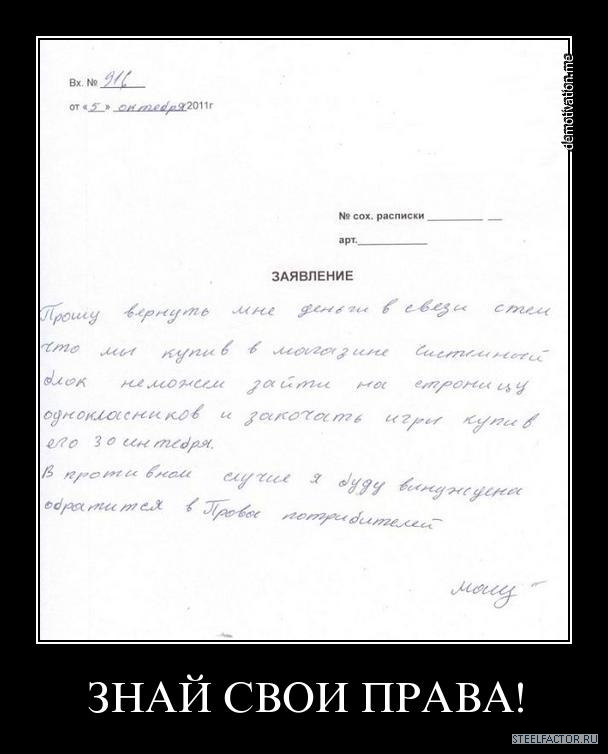 Вх. № 916
от « 5 » октебря 2011г
demotivation.me
№ сох. расписки
арт.
ЗАЯВЛЕНИЕ
Прошу вернуть мне деньги в свези стем
что мы купив в магазине Системной
блок неможем зайти на строницу
однокласников и закочать игры купив
его 30 интебря.
В противном случие я буду винуждена
обратится в Права потрибителей
ЗНАЙ СВОИ ПРАВА!
STEELFACTOR.RU